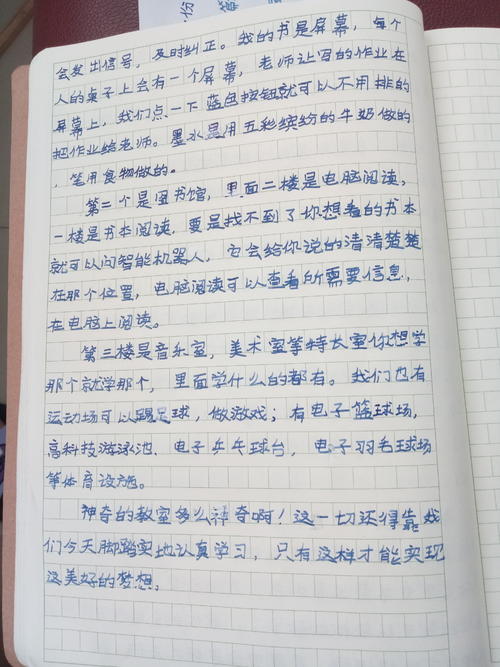 份
会发出信号，及时纠正。我的书是屏幕，每个
人的桌子上会有一个屏幕，老师让写的作业在
屏幕上，我们点一下蓝色按钮就可以不用排的
把作业给老师。墨水是用五彩缤纷的牛奶做的
，笔用食物做的。
第二个是图书馆，里面二楼是电脑阅读，
一楼是书本阅读，要是找不到了你想看的书本
就可以问智能机器人，它会给你说的清清楚楚
在那个位置，电脑阅读可以查看所需要信息，
在电脑上阅读。
第三楼是音乐室，美术室等特长室你想学
那个就学那个，里面学什么的都有。我们也有
运动场可以踢足球，做游戏；有电子篮球场，
高科技游泳池、电子乒乓球台，电子羽毛球场
等体育设施。
神奇的教室多么神奇啊！这一切还得靠我
们今天脚踏实地认真学习，只有这样才能实现
这美好的梦想。